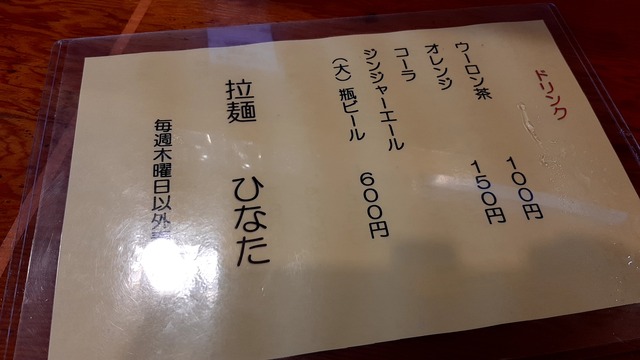 ドリンク
ウーロン茶 100円
オレンジ 150円
コーラ
ジンジャーエール
(大)瓶ビール 600円
拉麺 ひなた
毎週木曜日以外